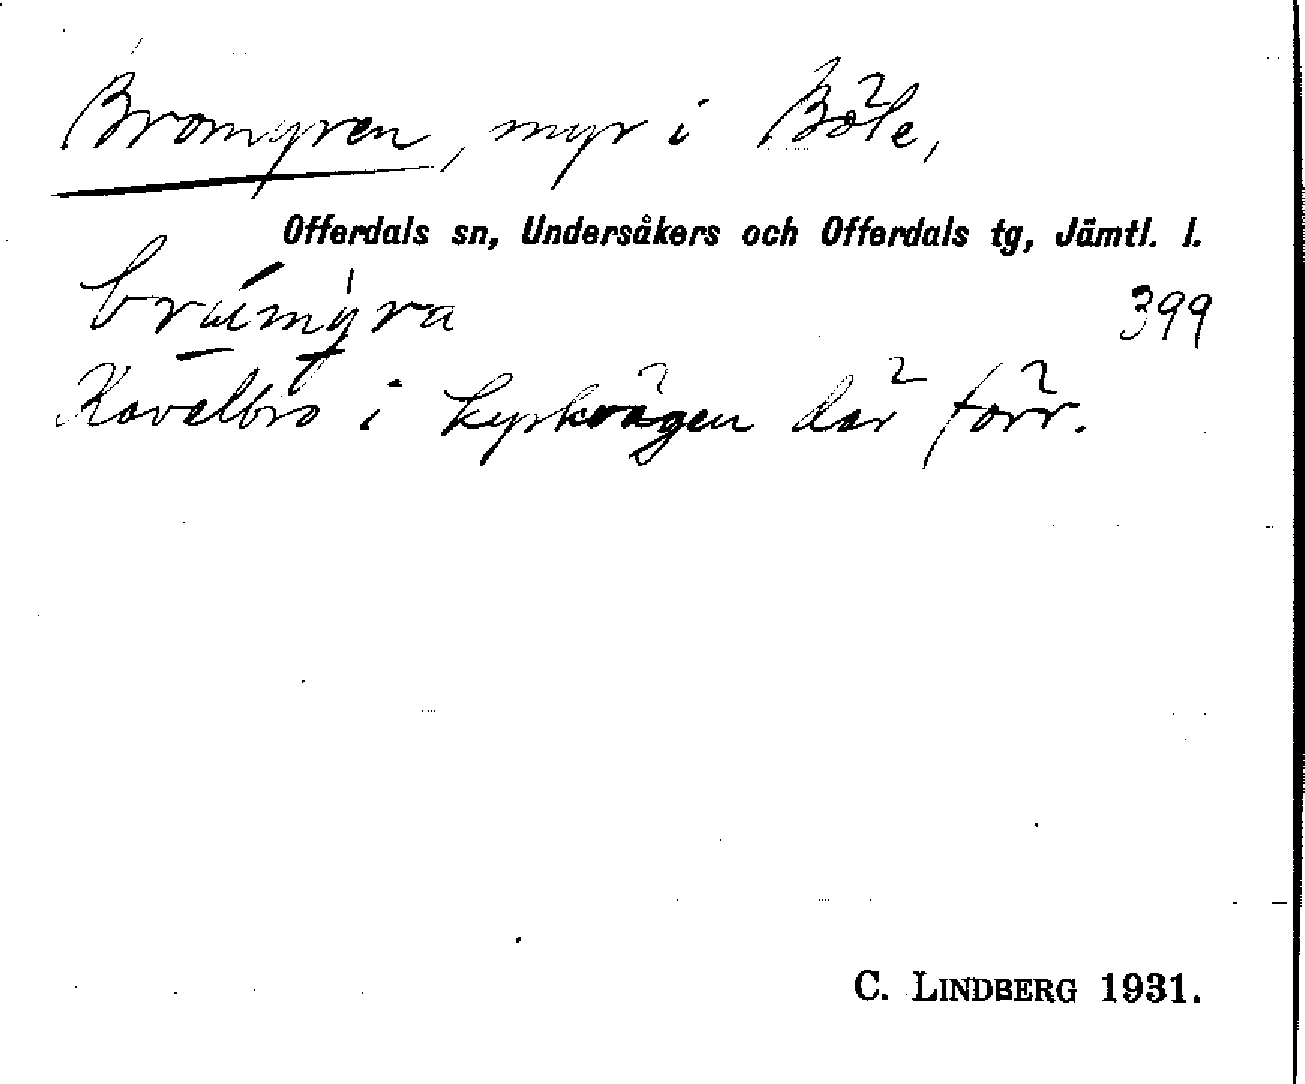 Bromyren, myr i Böle,
Offerdals sn, Undersåkers och Offerdals tg, Jämtl. l.
399
Kavelbro i kyrkvägen där förr.
C. LINDBERG 1931.